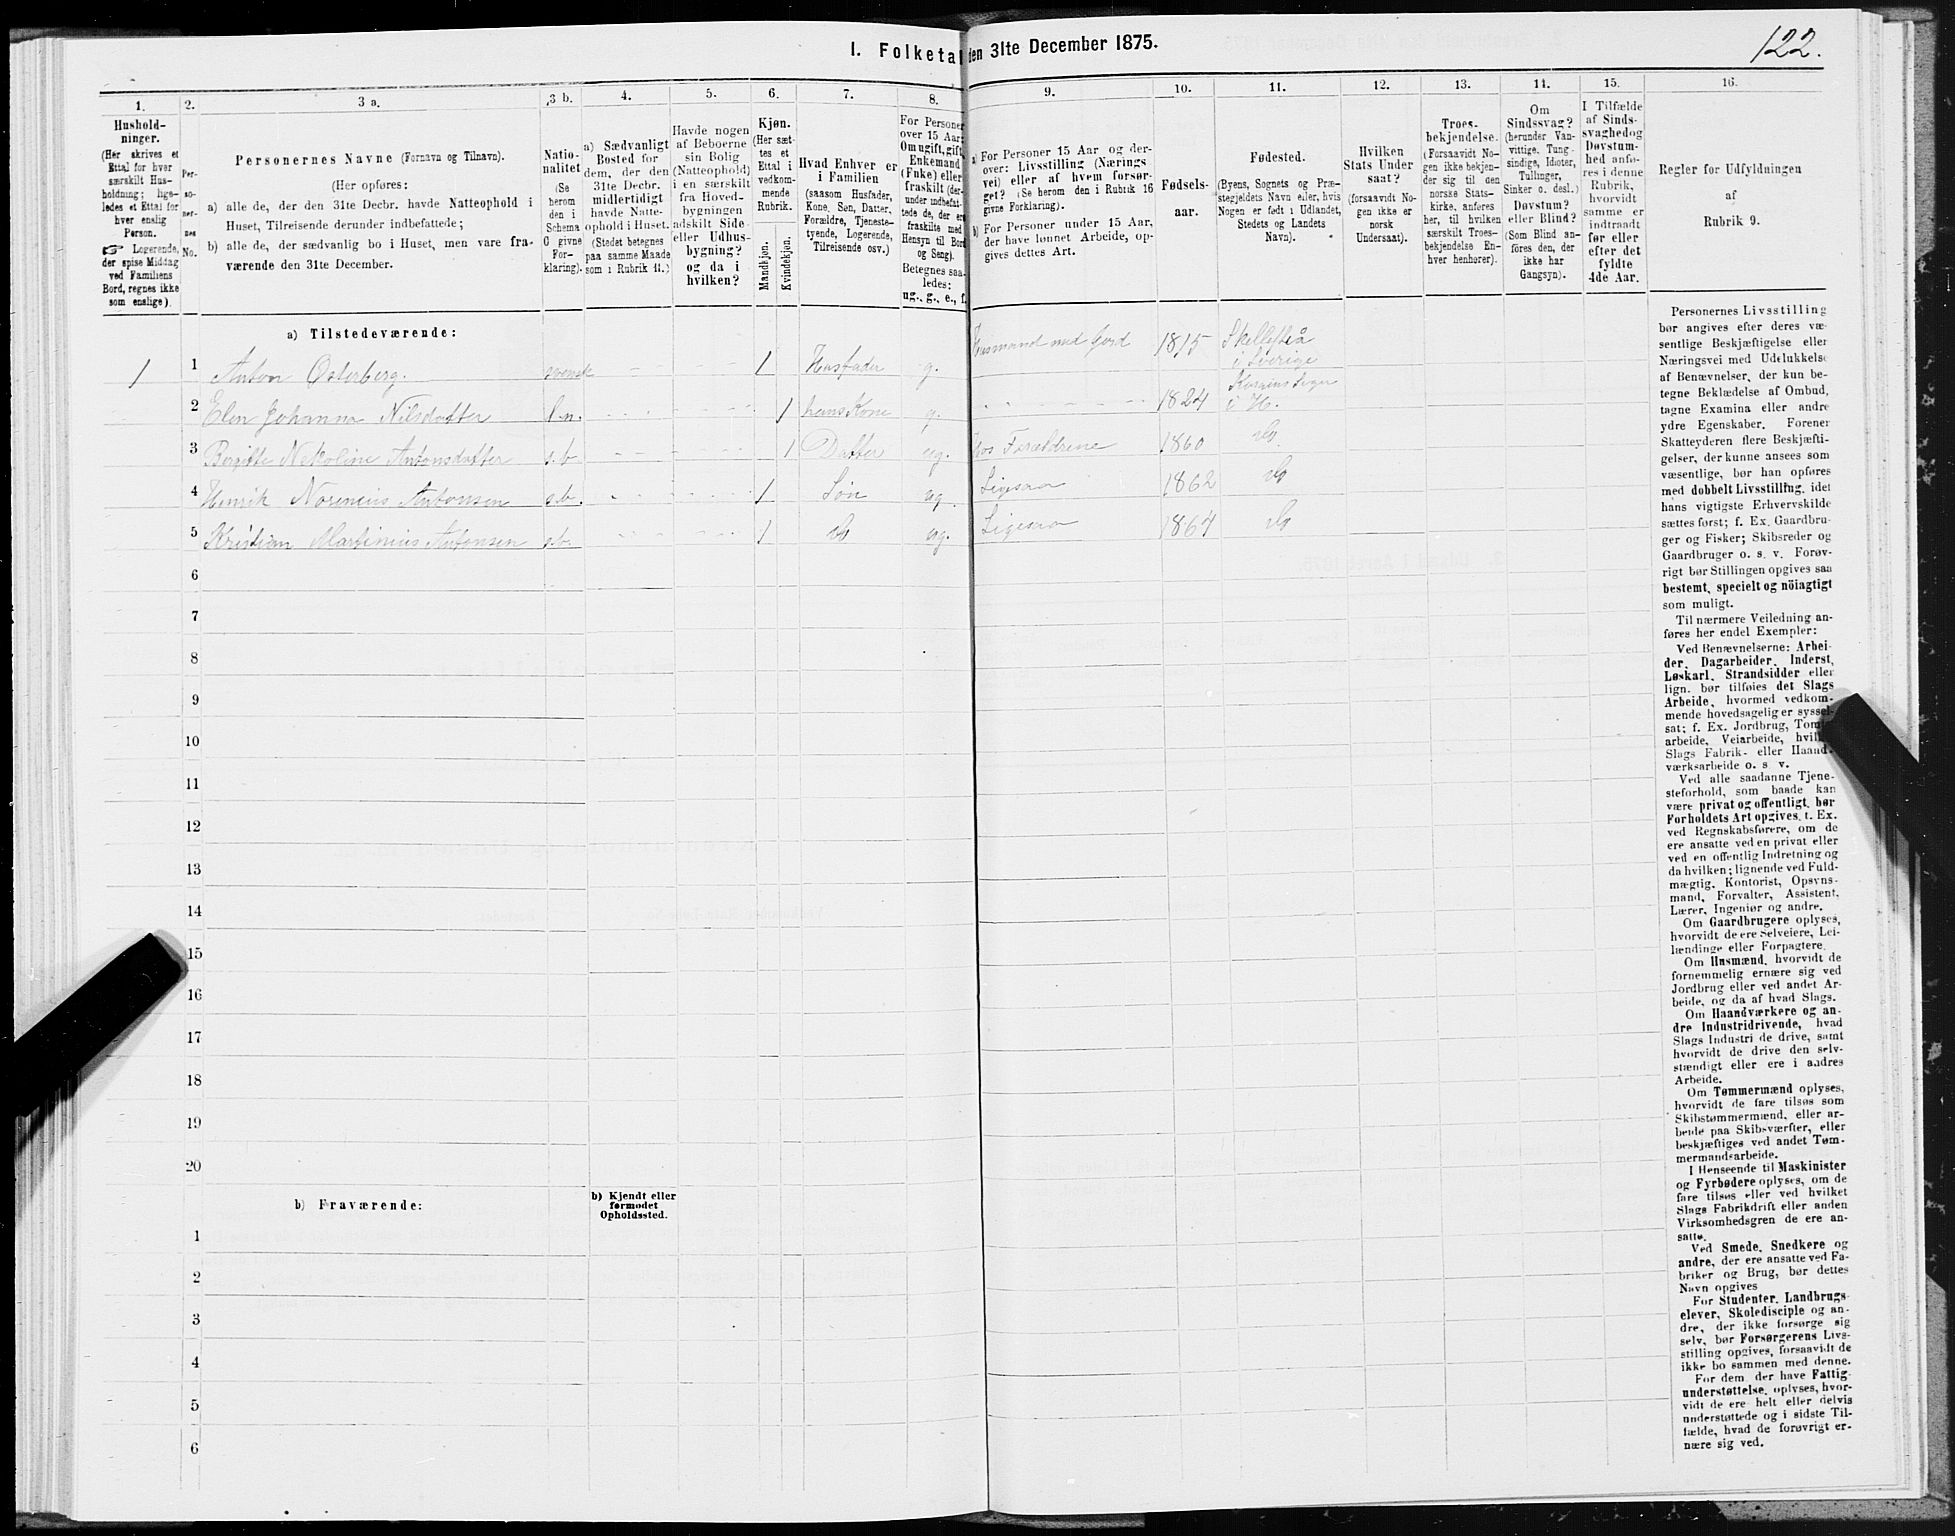 122.
I. Folketal den 31te December 1875.
1.
Hushold-
ninger.
(Her skrives et
Ettal for hver
særskilt Hus-
holdning; lige-
ledes et Ettal for
hver enslig
Person.
☞ Logerende,
der spise Middag
ved Familiens
Bord, regnes ikke
som enslige).
2.
Per-
so-
ner-
nes
No.
3 a.
Personernes Navne (Fornavn og Tilnavn).
(Her opføres:
a) alle de, der den 31te Decbr. havde Natteophold i
Huset, Tilreisende derunder indbefattede;
b) alle de, der sædvanlig bo i Huset, men vare fra-
værende den 31te December.
3 b.
Natio-
nalitet
(Se
herom
den i
Schema
C givne
For-
klaring).
4.
a) Sædvanligt
Bosted for
dem, der den
31te Decbr.
midlertidigt
havde Natte-
ophold i Huset.
(Stedet betegnes
paa samme Maade
som i Rubrik 11.)
5.
Havde nogen
af Beboerne
sin Bolig
(Natteophold)
i en særskilt
fra Hoved-
bygningen
adskilt Side-
eller Udhus-
bygning?
og da i
hvilken?
6.
Kjøn.
(Her sæt-
tes et
Ettal i
vedkom-
mende
Rubrik.
Mandkjøn.
Kvindekjøn.
7.
Hvad Enhver er
i Familien
(saasom Husfader,
Kone, Søn, Datter,
Forældre, Tjeneste-
tyende, Logerende,
Tilreisende osv.)
8.
For Personer
over 15 Aar:
Om ugift, gift,
Enkemand
(Enke) eller
fraskilt (der-
under indbefat-
tede de, der ere
fraskilte med
Hensyn til Bord
og Seng).
Betegnes saa-
ledes:
ug., g., e., f.
9.
a) For Personer 15 Aar og der-
over: Livsstilling (Nærings-
vei) eller af hvem forsør-
get? (Se herom den i Rubrik 16
givne Forklaring).
b) For Personer under 15 Aar,
der have lønnet Arbeide, op-
gives dettes Art.
10.
Fødsels-
aar.
11.
Fødested.
(Byens, Sognets og Præ-
stegjeldets Navn eller, hvis
Nogen er født i Udlandet,
Stedets og Landets
Navn).
12.
Hvilken
Stats Under-
saat?
(forsaavidt No-
gen ikke er
norsk
Undersaat).
13.
Troes-
bekjendelse.
(Forsaavidt No-
gen ikke bekjen-
der sig til den
norske Stats-
kirke, anføres
her, til hvilken
særskilt Troes-
bekjendelse En-
hver henhører).
14.
Om
Sindssvag?
(herunder Van-
vittige, Tung-
sindige, Idioter,
Tullinger,
Sinker o. desl.)
Døvstum?
eller Blind?
(Som Blind an-
føres den, der
ikke har
Gangsyn).
15.
I Tilfælde
af Sinds-
svaghed og
Døvstum-
hed anfø-
res i denne
Rubrik,
hvorvidt
samme er
indtraadt
før eller
efter det
fyldte
4de Aar.
16.
Regler for Udfyldningen
af
Rubrik 9.
a) Tilstedeværende:
1 1 Anton Østerberg. svensk 1 Husfader g. Husmand med Jord 1815 Skellefteå i Sverige
2 Elen Johanna Nilsdatter l.n. 1 hans Kone g. 1824 i H.
3 Bergitte Nekoline Antonsdatter s.b. 1 Datter ug. hos Forældrene 1860 do
4 Henrik Norenius Antonsen s.b. 1 Søn ug. Ligesaa 1862 do
5 Kristian Martinius Antonsen s.b. 1 do ug. Ligesaa 1867 do
6
7
8
9
10
11
12
13
14
15
16
17
18
19
20
b) Fraværende:
b) Kjendt eller
formodet
Opholdssted.
1
2
3
4
5
6
Personernes Livsstilling
bør angives efter deres væ-
sentlige Beskjæftigelse eller
Næringsvei med Udelukkelse
af Benævnelser, der kun be-
tegne Beklædelse af Ombud,
tagne Examina eller andre
ydre Egenskaber. Forener
Skatteyderen flere Beskjæfti-
gelser, der kunne ansees som
væsentlige, bør han opføres
med dobbelt Livsstilling, idet
hans vigtigste Erhvervskilde
sættes først; f. Ex. Gaardbru-
ger og Fisker; Skibsreder og
Gaardbruger o. s. v. Forøv-
rigt bør Stillingen opgives saa
bestemt, specielt og nöiagtigt
som muligt.
Til nærmere Veiledning an-
føres her endel Exempler:
Ved Benævnelserne: Arbei-
der, Dagarbeider, Inderst,
Løskarl, Strandsidder eller
lign. bør tilføies det Slags
Arbeide, hvormed vedkom-
mende hovedsagelig er syssel-
sat; f. Ex. Jordbrug, Tomt-
arbeide, Veiarbeide, hvilket
Slags Fabrik- eller Haand-
værksarbeide o. s. v.
Ved alle saadanne Tjene-
steforhold, som baade kan
være privat og offentligt, bør
Forholdets Art opgives, t. Ex.
ved Regnskabsførere, om de
ere ansatte ved en privat eller
ved en offentlig Indretning og
da hvilken; lignende ved Fuld-
mægtig, Kontorist, Opsyns-
mand, Forvalter, Assistent,
Lærer, Ingeniør og andre.
Om Gaardbrugere oplyses,
hvorvidt de ere Selveiere, Lei-
lændinge eller Forpagtere.
Om Husmænd, hvorvidt de
fornemmelig ernære sig ved
Jordbrug eller ved andet Ar-
beide, og da af hvad Slags.
Om Haandværkere og an-
dre Industridrivende, hvad
Slags Industri de drive, samt
hvorvidt de drive den selv-
stændigt eller ere i andres
Arbeide.
Om Tømmermænd oplyses,
hvorvidt de fare tilsøs som
Skibstømmermænd, eller ar-
beide paa Skibsværfter, eller
beskjæftiges ved andet Tøm-
mermandsarbeide.
I Henseende til Maskinister
og Fyrbødere oplyses, om de
fare tilsøs eller ved hvilket
Slags Fabrikdrift eller anden
Virksomhedsgren de ere an-
satte.
Ved Smede, Snedkere og
andre, der ere ansatte ved Fa-
briker og Brug, bør dettes
Navn opgives
For Studenter, Landbrugs-
elever, Skoledisciple og an-
dre, der ikke forsørge sig
selv, bør Forsørgerens Livs-
stilling opgives, forsaavidt de
ikke bo sammen med denne.
For dem, der have Fattig-
understøttelse, oplyses, hvor-
vidt de ere helt eller delvis
understøttede og i sidste Til-
fælde, hvad de forøvrigt er-
nære sig ved.